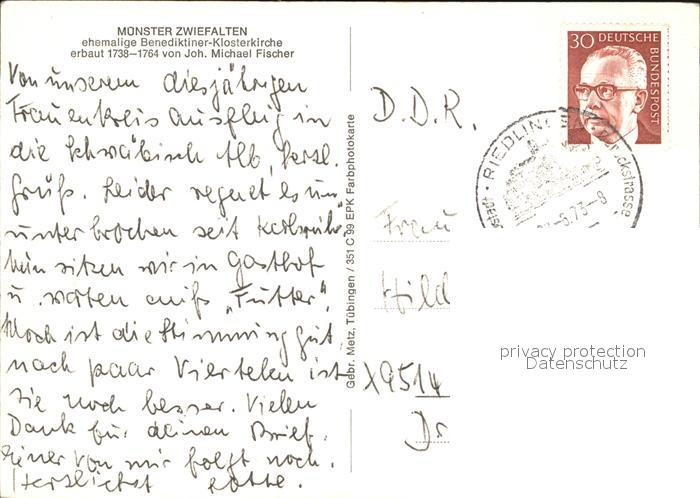 MÜNSTER ZWIEFALTEN
ehemalige Benediktiner-Klosterkirche
erbaut 1738—1764 von Joh. Michael Fischer
Von unserem diesjährigen
Frauenkreis Ausflug in
die Schwäbisch Alb, herzl.
Gruß. Leider regnet es un
unterbrochen seit Karlsruhe
sitzen wir in Gasthof
u. warten aufs „Futter".
Noch ist die Stimmung gut,
nach paar Vierteln ist
sie noch besser. Vielen
Dank für deinen Brief.
Einer von mir folgt noch.
Herzlichst Lotte.
Gebr. Metz, Tübingen / 351 C 99 EPK Farbphotokarte
30 DEUTSCHE
BUNDESPOST
RIEDLINGEN
-8.73-8
D.D.R.
Frau
Hild
X9514
Dr
privacy protection
Datenschutz